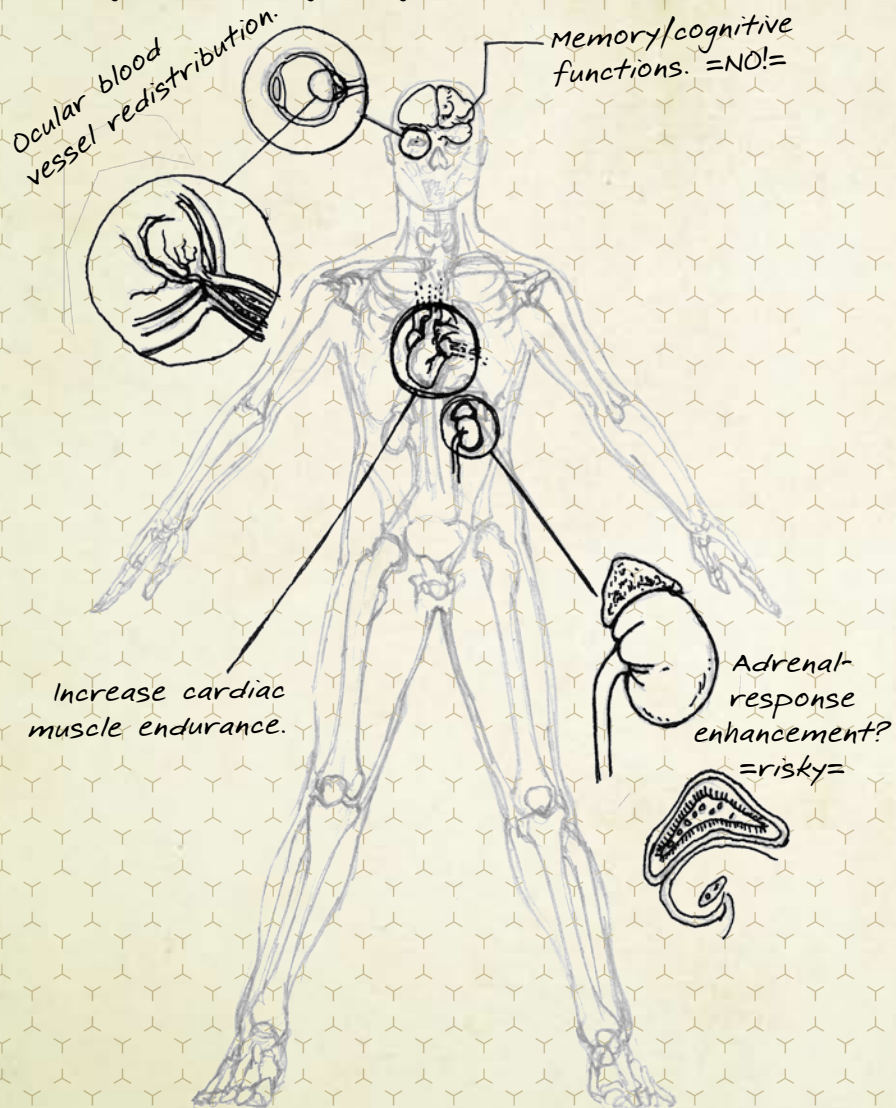 Ocular blood
vessel redistribution.
Memory/cognitive
functions. =NO!=
Increase cardiac
muscle endurance.
Adrenal-
response
enhancement?
=risky=